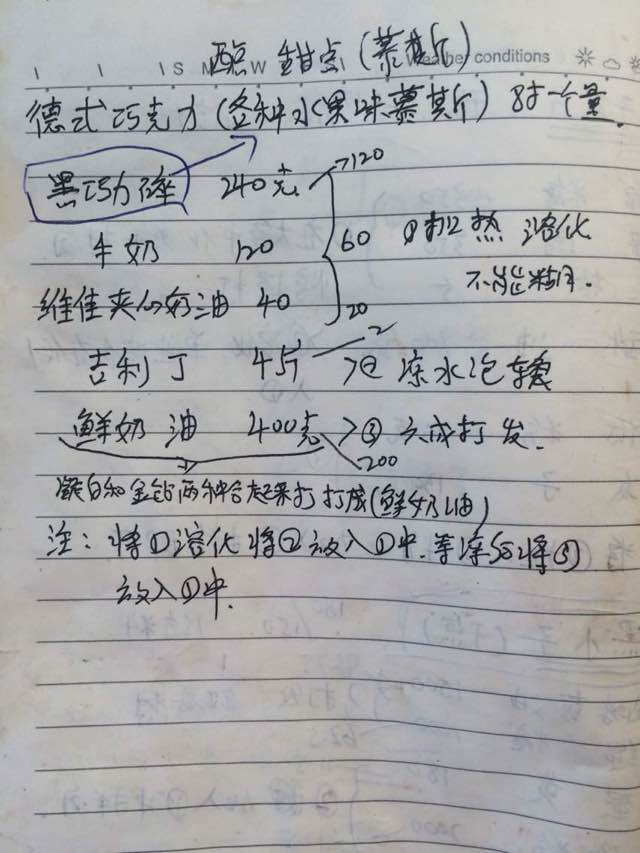 I I I S M W I Weather conditions
甜点(慕斯)
德式巧克力(各种水果味慕斯) 8寸一个量
黑巧力碎 240克 →120
牛奶 120 60 ①加热 溶化
不能糊.
维佳夹心奶油 40 20
吉利丁 4片 2 >② 凉水泡软
鲜奶油 400克 >③ 六成打发.
200
和金钻两种合起来打 打成(鲜奶油)
注: 将①溶化将②放入①中.等凉后将③
放入①中.